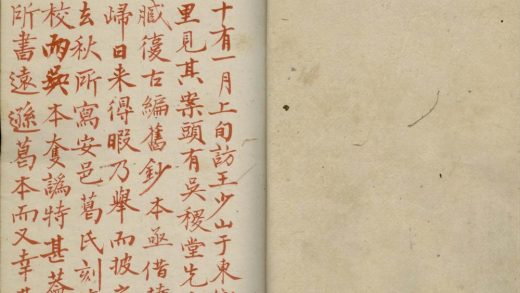 十有一月上旬訪王少山于東
里見其案頭有吳稷堂先
臧復古編舊鈔本亟借
歸日来得暇乃舉而披
去秋所寫安邑葛氏刻
校而吳本奪譌特甚蓋
所書遠遜葛本而又幸